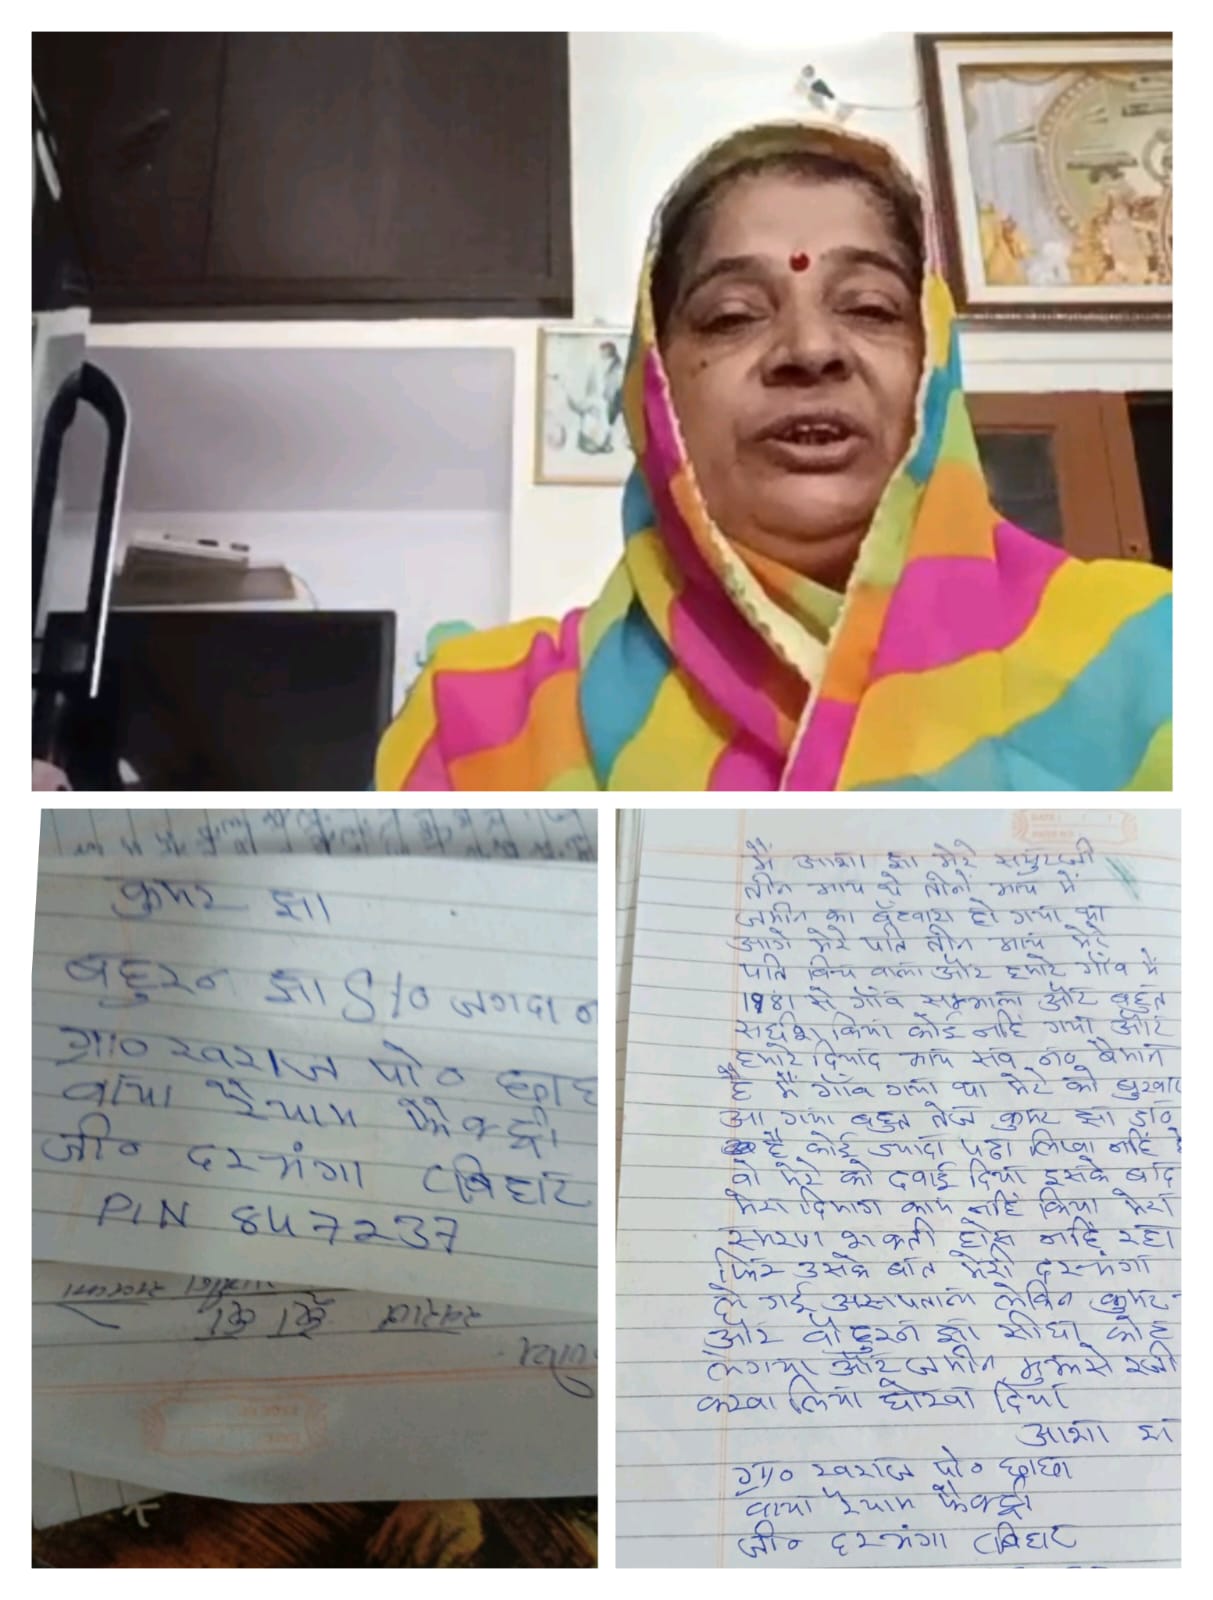 कुमर झा
बहुरन झा S/o जगदा न
ग्रा० खराज पो० छाछ
वाया रैयाम फैक्ट्री
जी० दरभंगा (बिहार
PIN 847237
मैं आशा झा मेरे ससुरजी
तीन भाय थे तीनों भाय में
जमीन का बँटवारा हो गया था
आगे मेरे पति तीन भाय मेरे
पति बिच वाला और हमारे गाँव में
1981 से गाँव सम्भाला और बहुत
संर्घश किया कोई नहिं गया और
हमारे दियाद भाय सब बैमान
है मैं गाँव गया था मेरे को बुखार
आ गया बहुत तेज कुमर झा डॉ०
है कोई ज्यादा पढा लिखा नहिं है
वो मेरे को दवाई दिया इसके बाद
मेरा दिमाग काम नहिं किया मेरा
स्मरण शक्ती होस नहिं रहा
फिर उसके बात मेरी दरभंगा
ले गई अस्पताल लेकिन कुमर
और बहुरन झा सीधा कोट
लेगया और जमीन मुझसे रजी
करवा लिया धोखा दिया
आशा झा
ग्रा० खराज पो० छाछा
वाया रैयाम फैक्ट्री
जी० दरभंगा (बिहार